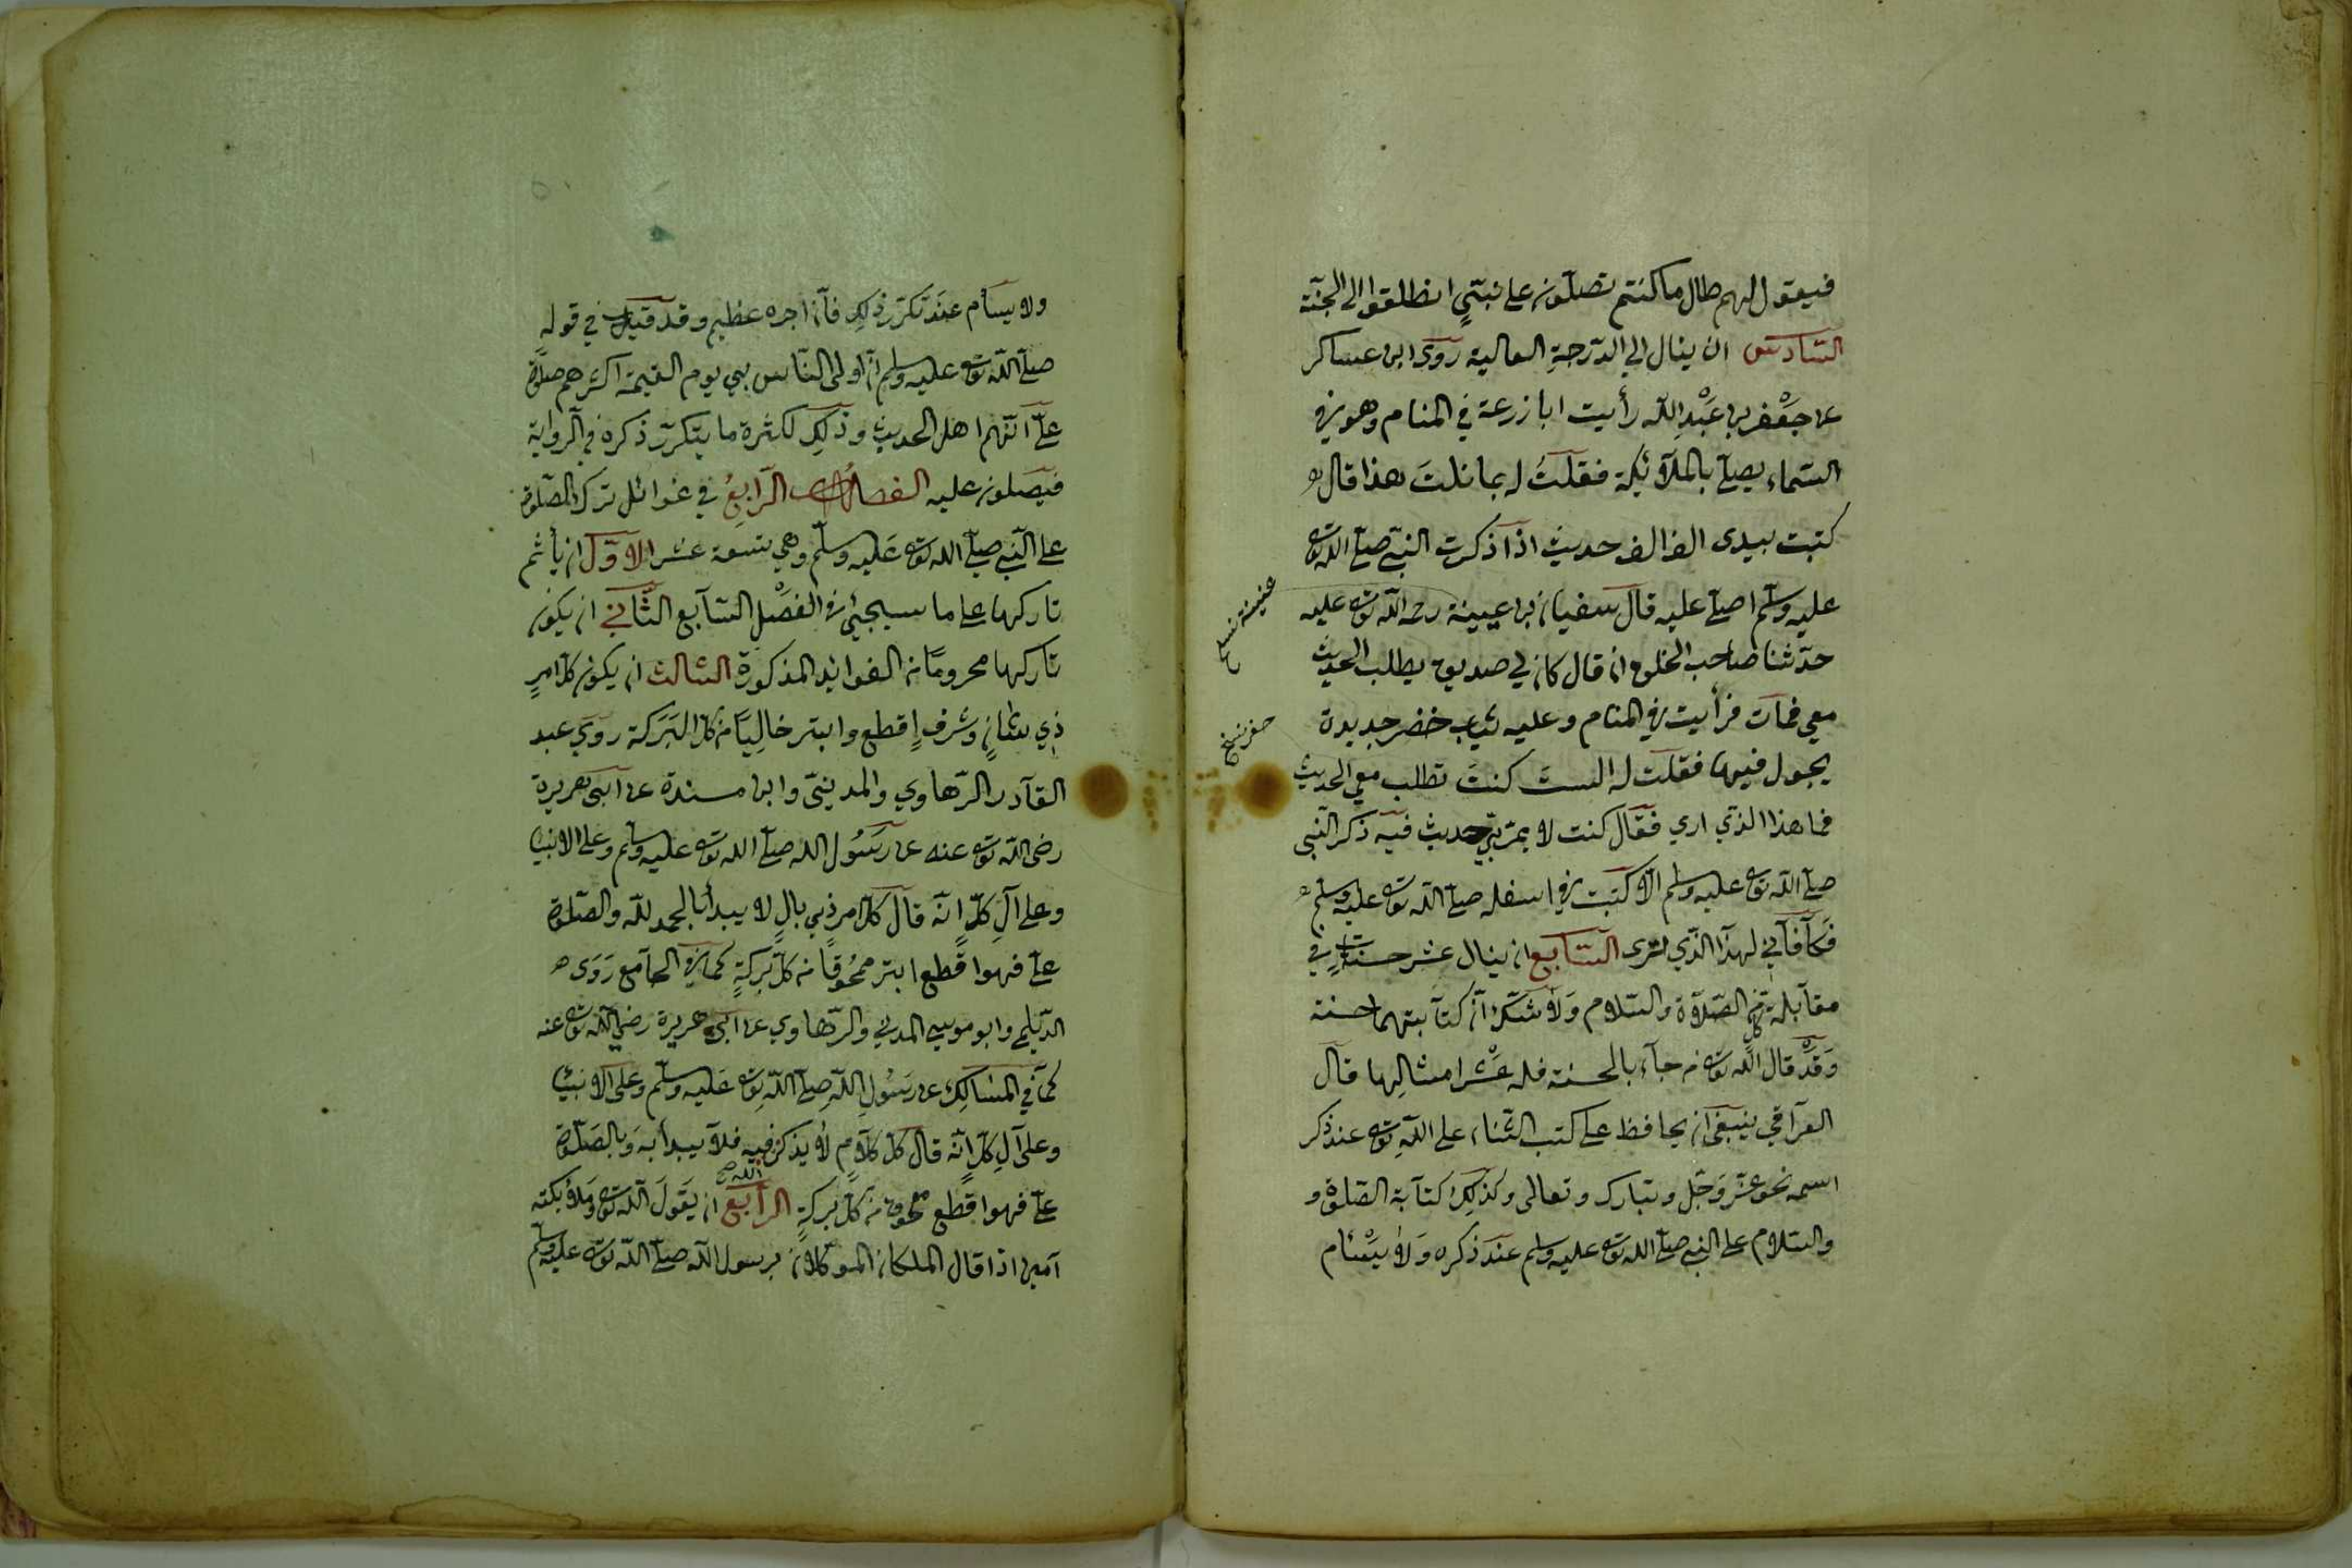 فيقول لهم طال ما كنتم تصلون على نبيّي انطلقوا الى الجنّة
السّادس ان ينال الى الدّرجةِ العالية روى ابن عساكر
عن جَعْفر بن عَبْدِ الله رأيت ابا زرعة في المنام وهو في
السّماء يصلّي بالملآئكة فقلتُ له بما نلتَ هذا قال
كتبت بيدى الف الف حديث اذا ذكرت النبيّ صلّى الله تعا
عليه وسلّم اصلّي عليه قال سفيان بن عيينة رحمه الله تعا عليه
عنيينة نسخ
حدّثنا صاحب الخلق انه قال كان لي صديق يطلب الحديث
معي فمات فرأيت في المنام وعليه ثياب خضر جديدة
حفر نسخ
يجول فيها فقلت له الستَ كنتَ تطلب معي الحديث
فما هذا الذي اري فقال كنت لا يمرّ بي حديث فيه ذكر النّبى
صلّى الله تعا عليه وسلم الّا كتبت في اسفله صلّى الله تعا عليه وسلّم
فكآفآني لهذا الّذي ترى السّابع ان ينال عشر حسنات في
مقابلة كلّ من الصّلاة والسّلام وَلا شكّ انّ كتابتهما حسنة
وَقَدْ قال الله تعا من جآء بالحسنة فله عَشْر امثالها قال
العراقي ينبغى ان يحافظ على كتب الثّناء على الله تعا عند ذكر
اسمه نحو عزّ وَجَلّ وتبارك وتعالى وكذلك كتابة الصّلوة و
والسّلام على النبيّ صلّى الله تعا عليه وسلم عند ذكره وَلا يَسْئام
ولا يسأم عند تكرّر ذلك فانّ اجره عظيم وقد قيل في قوله
صلّى الله تعا عليه وسلم انّ اولى النّاس بي يوم القيمة اكثرهم صلوة
علىّ انّهم اهل الحديث وذلك لكثرة ما يتكرّر ذكره في الرواية
فيصلون عليه الفصل الرّابعُ في غوائل ترك الصّلوة
على النّبي صلّى الله تعا عَليه وسلّم وهي تسعة عشر الاوّل ان يأثم
تاركها على ما سيجيئ في الفصْلِ السّابع الثّاني ان يكون
تاركها محرومًا من الفوائد المذكورة الثالث ان يكون كلّ امرٍ
ذِي شانٍ وشرفٍ اِقطع وابتر خالِيًا من كلّ البَرَكة رَوَي عبد
القآدر الرّهاوي والمدينىّ وابن مسندة عن ابى هريرة
رضى الله تعا عنه عن رَسُول الله صلّى الله تعا عليه وسلم وعلى الانبيا
وعلى آلِ كلّ انّه قال كلّ امر ذي بالٍ لا يبدأ بالحمد لله والصّلوة
علىّ فهوا قطع ابتر ممحُوقًا من كلّ بركةٍ كما في الجآمع رَوَى
الدّيلمي وابو موسي المدني والرّهاوي عن ابى هريرة رضي الله تعا عنه
كما في المسَالك عن رَسُولِ اللهِ صلّى الله تعا عَليه وسلّم وعلى الانبيا
وعلى آلِ كلّ انّه قال كلّ كلامٍ لا يذكر الله فيه فلا يبدأ به وَبالصّلوة
علىّ فهوا قطع ممحوق من كلّ بركةٍ الرابع ان يَقولَ الله تعا وملائكته
آمين اذا قال الملكان الموكلان برسول الله صلّى الله تعا عليه وسلّم